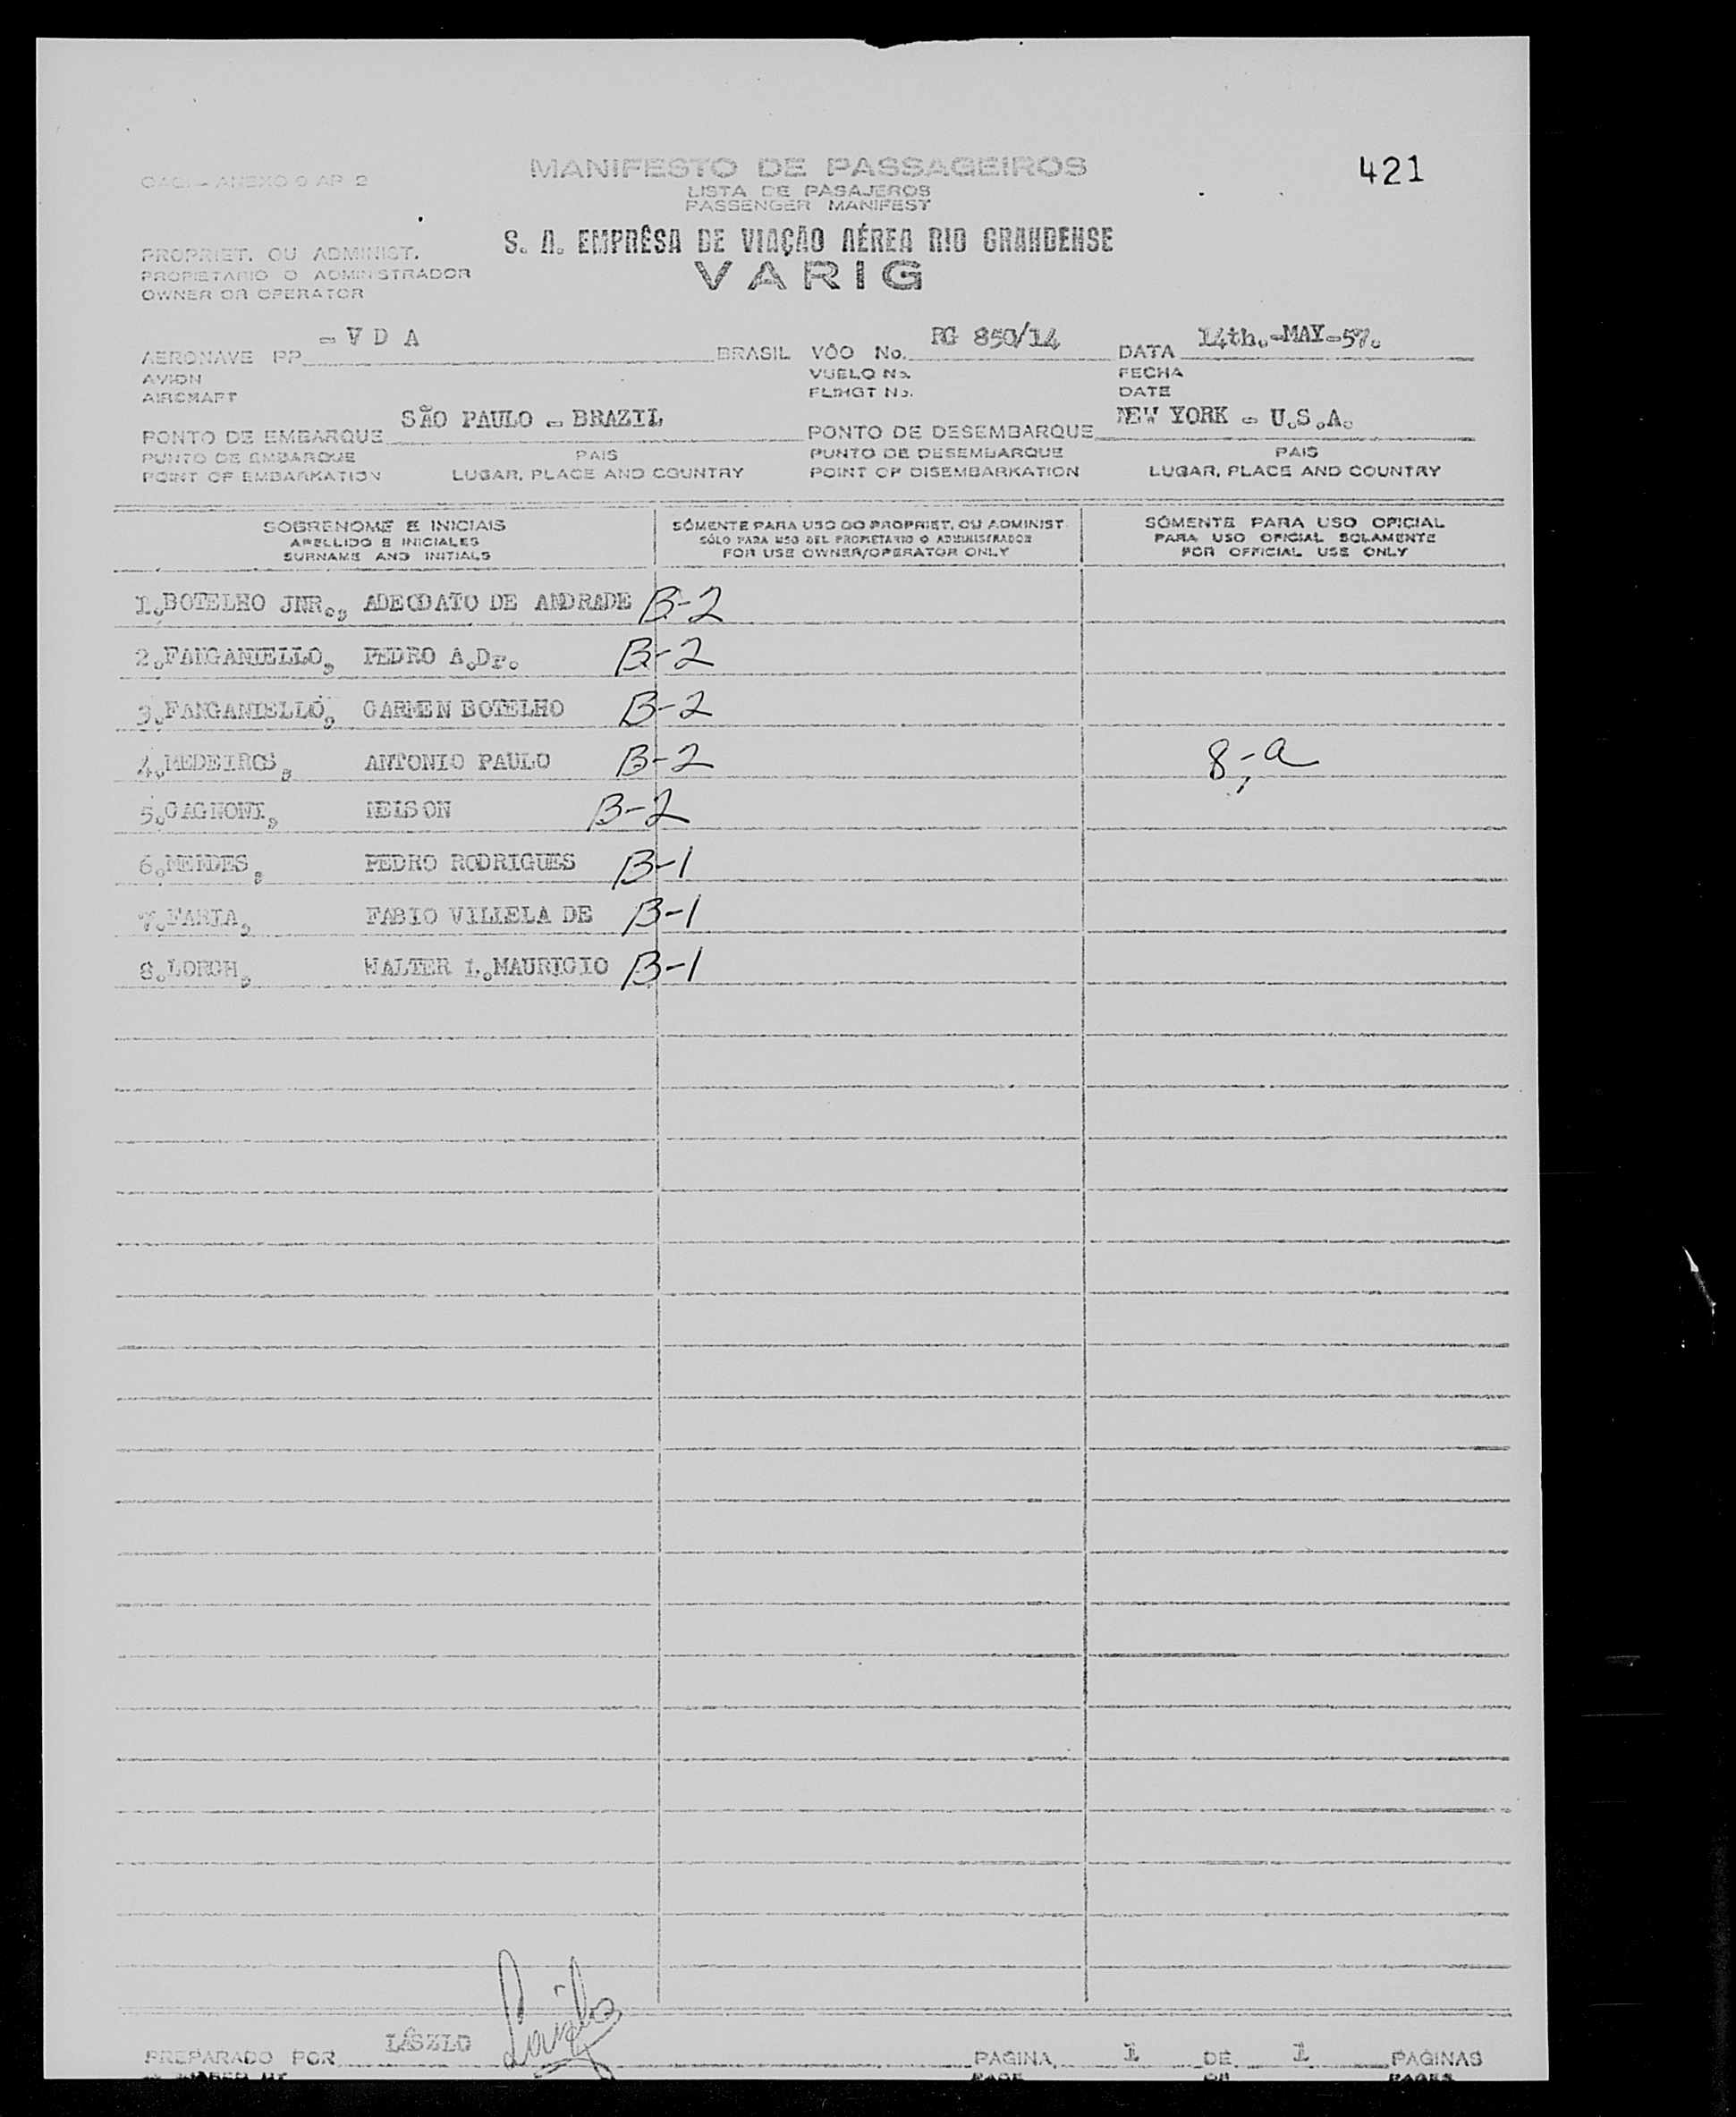 OACI - ANEXO 9 AP 2
MANIFESTO DE PASSAGEIROS
421
LISTA DE PASAJEROS
PASSENGER MANIFEST
S. A. EMPRÊSA DE VIAÇÃO AÉREA RIO GRANDENSE
VARIG
PROPRIET. OU ADMINIST.
PROPIETARIO O ADMINISTRADOR
OWNER OR OPERATOR
AERONAVE PP - V D A BRASIL VÔO No. RG 850/14 DATA 14th.-MAY-57.
AVION VUELO No. FECHA
AIRCRAFT FLIHGT No. DATE
PONTO DE EMBARQUE SÃO PAULO - BRAZIL PONTO DE DESEMBARQUE NEW YORK - U.S.A.
PUNTO DE EMBARQUE PAIS PUNTO DE DESEMBARQUE PAIS
POINT OF EMBARKATION LUGAR, PLACE AND COUNTRY POINT OF DISEMBARKATION LUGAR, PLACE AND COUNTRY
SOBRENOME E INICIAIS SÒMENTE PARA USO DO PROPRIET. OU ADMINIST. SÒMENTE PARA USO OFICIAL
APELLIDO E INICIALES SÓLO PARA USO DEL PROPIETARIO O ADMINISTRADOR PARA USO OFICIAL SOLAMENTE
SURNAME AND INITIALS FOR USE OWNER/OPERATOR ONLY FOR OFFICIAL USE ONLY
1.BOTELHO JNR., ADEODATO DE ANDRADE B-2
2.FANGANIELLO, PEDRO A.Dr. B-2
3.FANGANIELLO, CARMEN BOTELHO B-2
4.MEDEIROS, ANTONIO PAULO B-2 8,-a
5.CAGNONI, NELSON B-2
6.MENDES, PEDRO RODRIGUES B-1
7.FARIA, FABIO VILLELA DE B-1
8.LORCH, WALTER L.MAURICIO B-1
PREPARADO POR LÁSZLO PAGINA 1 DE 1 PAGINAS
PAGE PAGES